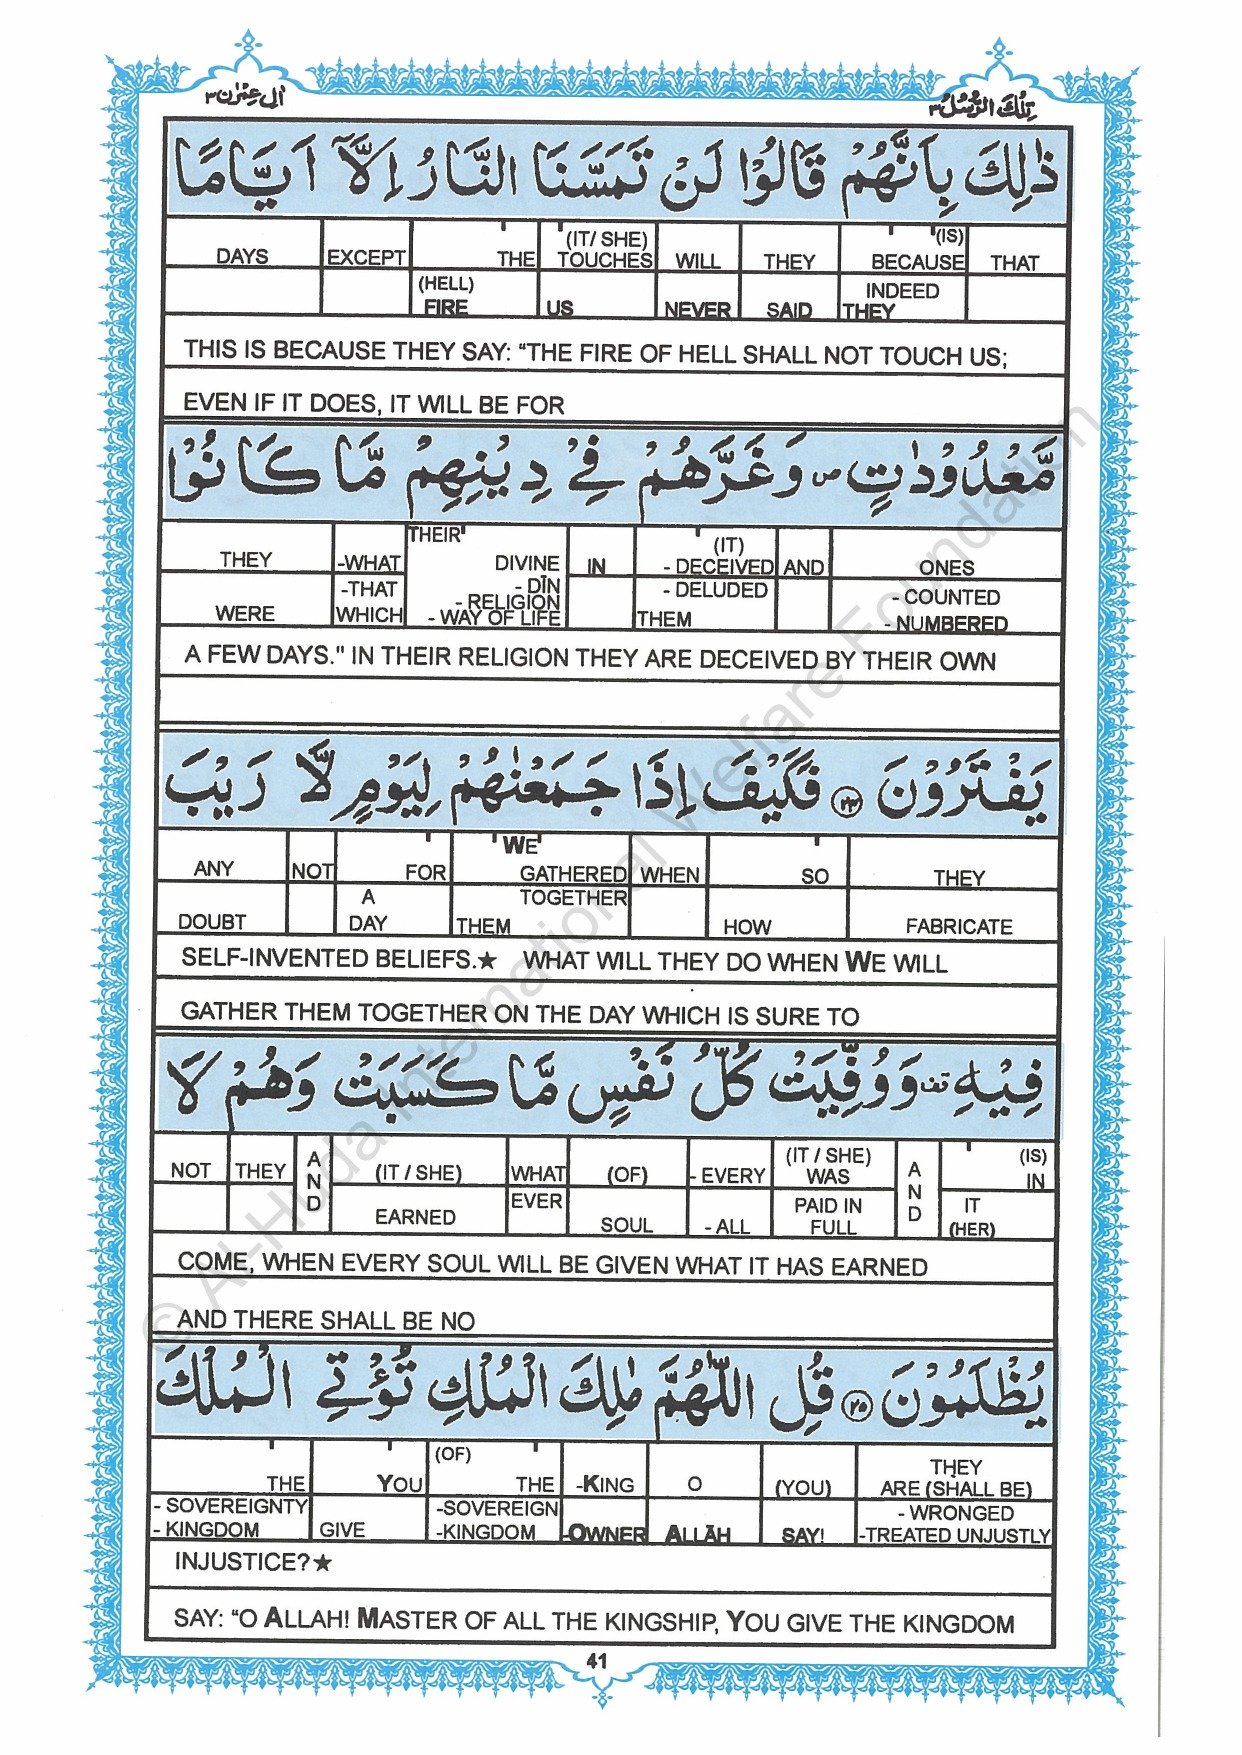 اٰل عِمْرٰن ٣
تِلْكَ الرُّسُلُ ٣
ذٰلِكَ بِاَنَّهُمْ قَالُوْا لَنْ تَمَسَّنَا النَّارُ اِلَّاۤ اَيَّامًا
DAYS EXCEPT THE (IT/ SHE) TOUCHES WILL THEY (IS) BECAUSE THAT
(HELL) FIRE US NEVER SAID INDEED THEY
THIS IS BECAUSE THEY SAY: “THE FIRE OF HELL SHALL NOT TOUCH US;
EVEN IF IT DOES, IT WILL BE FOR
مَّعْدُوْدٰتٍ ۪ وَ غَرَّهُمْ فِيْ دِيْنِهِمْ مَّا كَانُوْا
THEY -WHAT THEIR DIVINE IN (IT) - DECEIVED AND ONES
WERE -THAT WHICH - DĪN - RELIGION - WAY OF LIFE - DELUDED THEM - COUNTED - NUMBERED
A FEW DAYS." IN THEIR RELIGION THEY ARE DECEIVED BY THEIR OWN
يَفْتَرُوْنَ ٢٤ فَكَيْفَ اِذَا جَمَعْنٰهُمْ لِيَوْمٍ لَّا رَيْبَ
ANY NOT FOR WE GATHERED WHEN SO THEY
DOUBT A DAY TOGETHER THEM HOW FABRICATE
SELF-INVENTED BELIEFS.★ WHAT WILL THEY DO WHEN WE WILL
GATHER THEM TOGETHER ON THE DAY WHICH IS SURE TO
فِيْهِ ۫ وَ وُفِّيَتْ كُلُّ نَفْسٍ مَّا كَسَبَتْ وَ هُمْ لَا
NOT THEY AND (IT / SHE) WHAT (OF) - EVERY (IT / SHE) WAS AND (IS) IN
EARNED EVER SOUL - ALL PAID IN FULL IT (HER)
COME, WHEN EVERY SOUL WILL BE GIVEN WHAT IT HAS EARNED
AND THERE SHALL BE NO
يُظْلَمُوْنَ ٢٥ قُلِ اللّٰهُمَّ مٰلِكَ الْمُلْكِ تُؤْتِي الْمُلْكَ
THE YOU (OF) THE -KING O (YOU) THEY ARE (SHALL BE)
- SOVEREIGNTY - KINGDOM GIVE -SOVEREIGN -KINGDOM -OWNER ALLĀH SAY! - WRONGED -TREATED UNJUSTLY
INJUSTICE?★
SAY: “O ALLAH! MASTER OF ALL THE KINGSHIP, YOU GIVE THE KINGDOM
41
© Al-Huda International Welfare Foundation